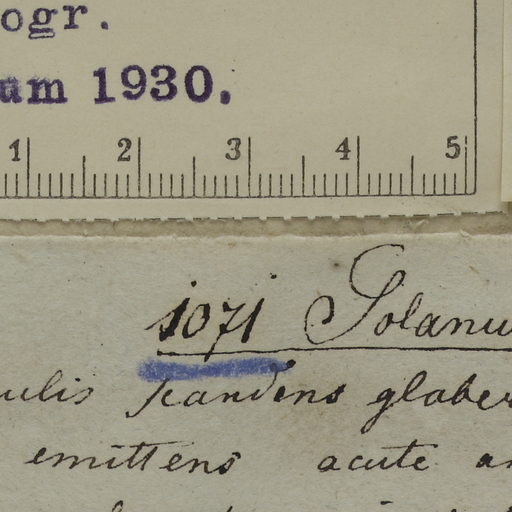 ogr.
um 1930.
1 2 3 4 5
1071 Solanu
ulis scandens glaber
emittens acute an